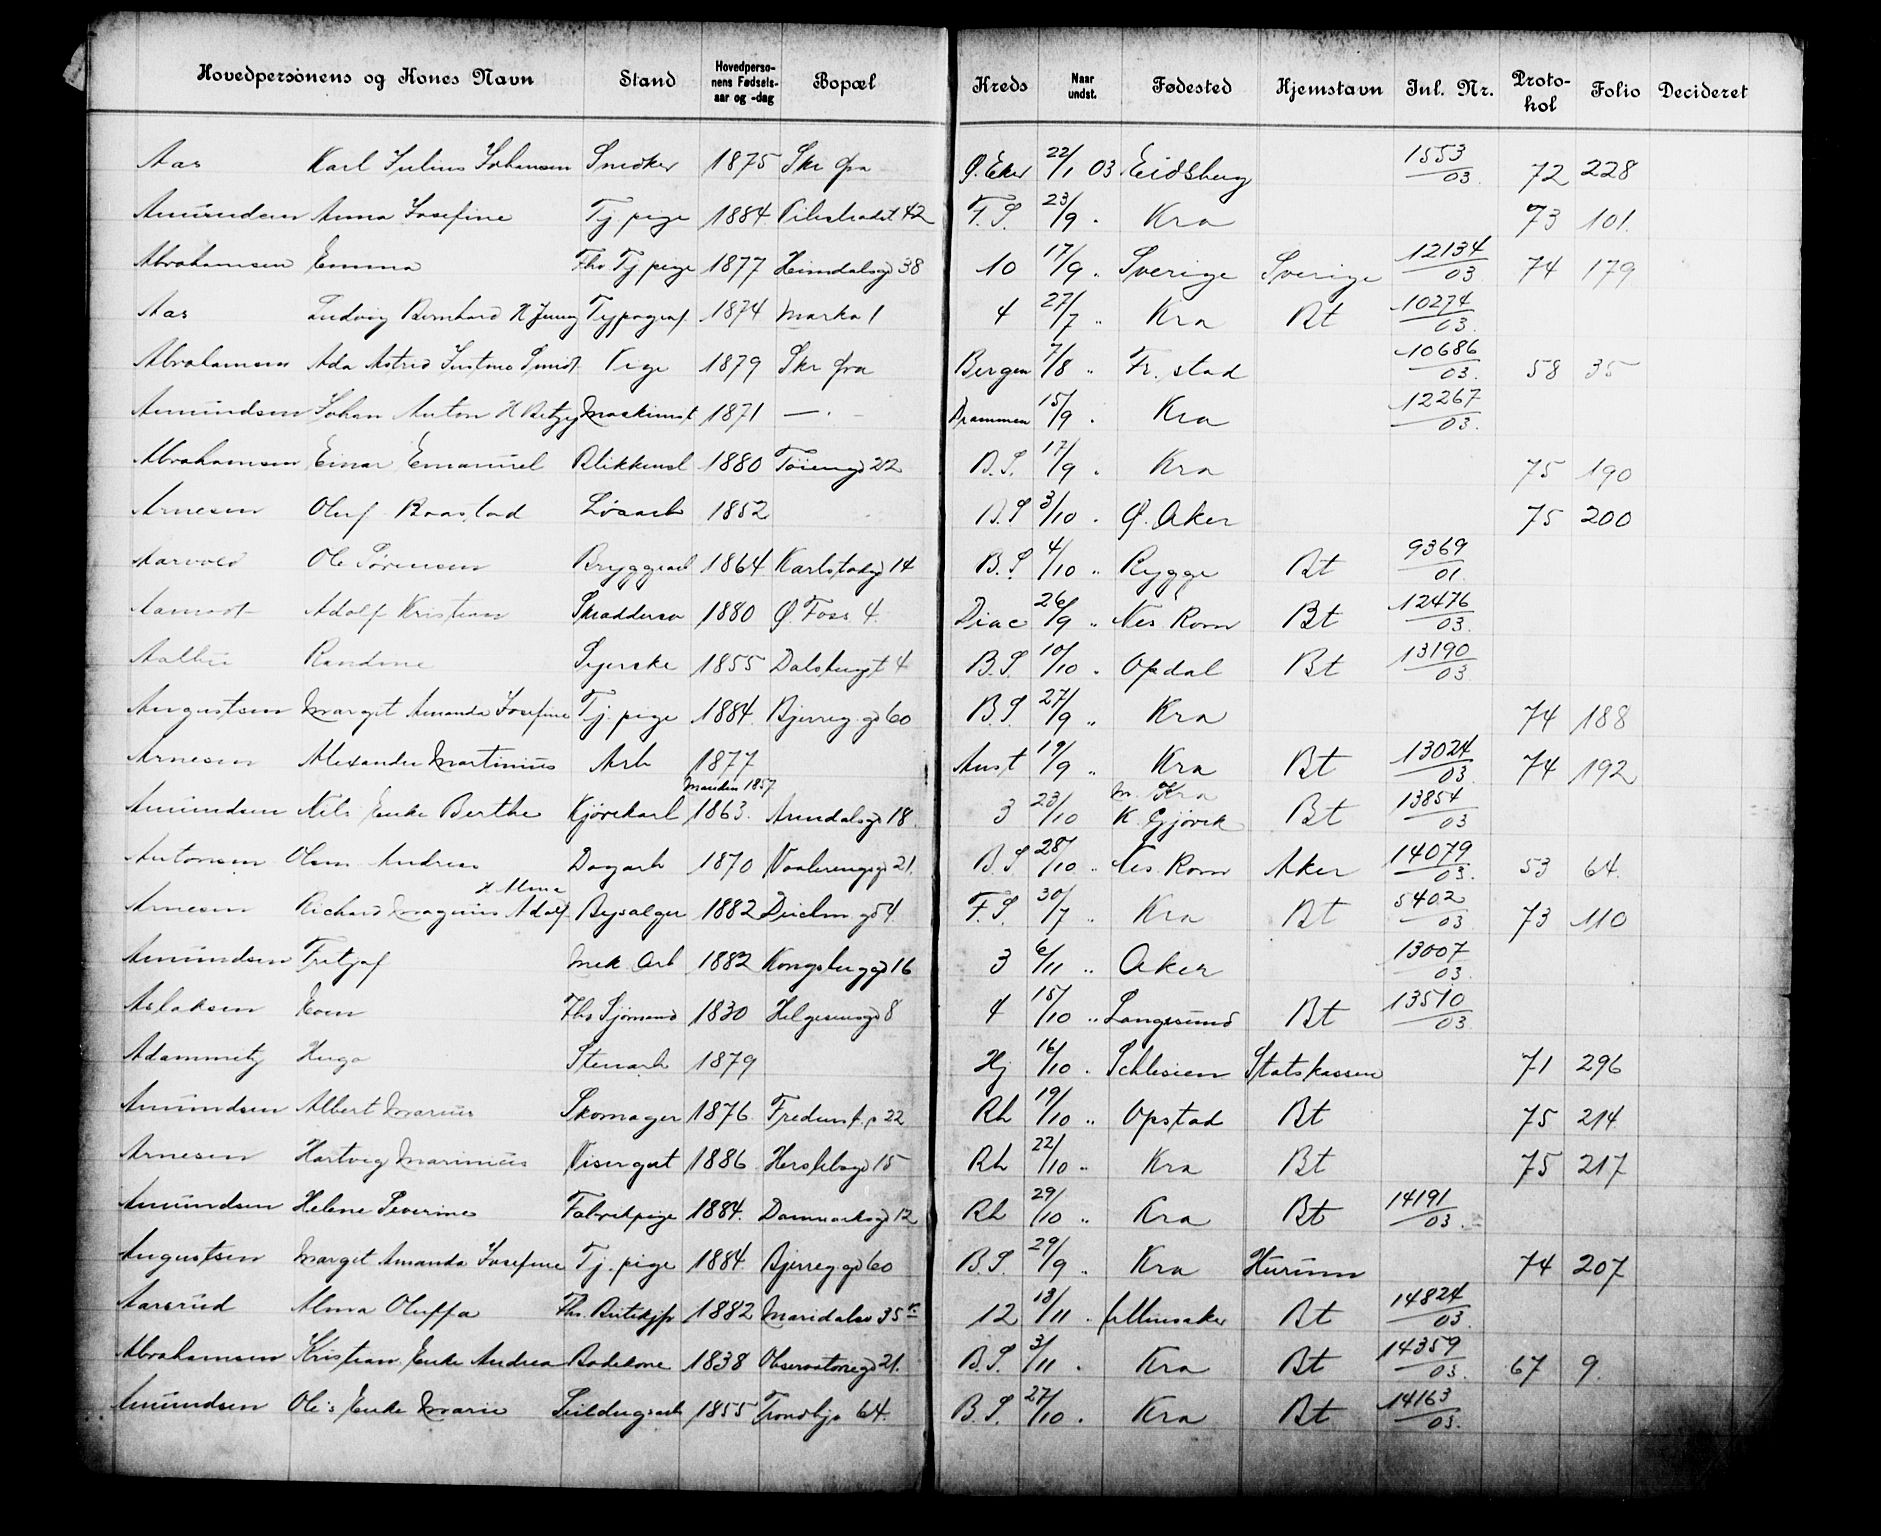 Hovedpersonens og Kones Navn Stand Hovedpersonens Fødselsaar og -dag Bopæl Kreds Naar undst. Fødested Hjemstavn Inl. Nr. Protokol Folio Decideret
Aas Karl Julius Johansen Snedker 1875 Skr fra Ø. Eker 22/1 03 Eidsberg 1553/03. 72 228
Amundsen Anna Josefine Tj. pige 1884 Pilestrædet 42 F. S. 23/9 " Kra 73 101.
Abrahamsen Emma Fhv Tj pige 1877 Heimdalsgd 38 10 17/9 " Sverige Sverige 12134/03 74 179
Aas Ludvig Bernhard H Jenny Typograf 1874 Marka 1 4 27/7 " Kra Bt 10274/03.
Abrahamsen Ada Astrid Justine Pige 1879 Skr fra Bergen 7/8 " Fr. stad 10686/03. 58 35
Amundsen Johan Anton H Betzy Maskinist 1871 — " — Drammen 15/9 . Kra 12267/03.
Abrahamsen Einar Emanuel Blikkensl 1880 Töiengd 22 B. S. 17/9 . Kra 75 190
Arnesen Oluf Baastad Løsarb 1852 B. S 3/10 . Ø. Aker 75 200
Aarvold Ole Sørensen Bryggearb 1864 Karlstadgd 14 B. S. 4/10 " Rygge Bt 9369/01.
Aamodt Adolf Kristian Skræddersv 1880 Ø. Foss 4. Diac 26/9 " Nes Rom Bt 12476/03.
Aalbu Randine Syerske 1855 Dalsbergst 4 B. S. 10/10 . Opdal Bt 13190/03.
Augustsen Margit Amanda Josefine Tj. pige 1884. Bjerreg. gd 60 B. S 27/9 " Kra 74 188
Arnesen Alexander Martinius Arb 1877 Aust 19/9 " Kra Bt 13024/03. 74 192
Manden 1857 m. Kra
Amundsen Nils Enke Berthe Kjørekarl 1863. Arendalsgd 18. 3 23/10 K. Gjøvik Bt 13854/03
Antonsen Olm Andreas Dagarb 1870 Vaalerenggd 21. B. S 28/10 " Nes. Rom Aker 14079/03. 53 64.
H Alma
Arnesen Richard Magnus Adolf Bysælger 1882 Deichm gd 4. F. S. 30/7 " Kra Bt 5402/03 73 110
Amundsen Fritjof Mek Arb 1882 Kongsberggd 16 3 6/11 " Aker 13007/03.
Aslaksen Even Fhv Sjömand 1830 Helgesensgd 8 4 15/10 " Langesund Bt 13510/03.
Adammetz Hugo Stenarb 1879 Hj 16/10 . Schlesien Statskassen 71 296
Amundsen Albert Marius Skomager 1876. Fredenst. p 22 Rh 19/10 " Opstad Bt 75 214.
Arnesen Hartvig Marinius Visergut 1886 Herslebsgd 15 Rh 22/10 " Kra Bt 75 217
Amundsen Helene Severine Fabrikpige 1884. Danmarksgd 12 Rh 29/10 " Kra Bt 14191/03.
Augustsen Margit Amanda Josefine Tj. pige 1884. Bjerreg. gd 60 B. S. 29/9 " Kra Hurum 74 207
Aasrud Alma Oluffa Fhv. Butikjfr 1882 Maridalsv 35 12 13/11 . Ullensaker Bt 14824/03.
Abrahamsen Kristian Enke Andrea Badekone 1838 Observatoriegd 21. B. S. 3/11 . Kra Bt 14359/03. 67 9.
Amundsen Ole's Enke Marie Seildugsarb 1855 Trondhjs 64. B. S. 27/10 . Kra Bt 14163/03.